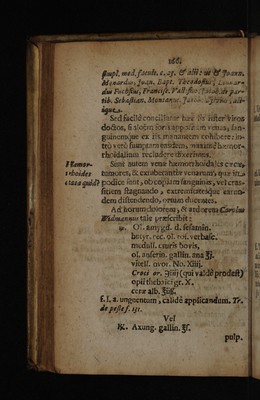 168
simpl. med. facult. c. 25. & alii: ut & Joann.
Monardus, Joan. Bapt. Theodosius, Leonar-
dus Fuchsius, Francisc. Jacob. de par-
tib. Sebastian. Montanus, Jacob. ali-
ique.
Sed facile conciliantur hæ inter viros
doctos, si aliàs apparcam venas, san-
guinemque ex iis manantem cohibere: in-
trò verò sumptam easdem, maximè hæmor-
rhoidalium recludere dixerimus.
Hæmor-
rhoides
cæcæ quid?
Sunt autem venæ hæmorrhoidales cæcæ,
tumores, & exuberantiæ venarum, quæ in
podice sunt, ob copiam sanguinis, vel cras-
sitiem stagnando, extremitatesque earun-
dem distendendo, ortum ducentes.
Ad horum dolorem, & ardorem Carolus
Widmannus tale præscribit:
℞. Ol. amygd. d. sesamin.
butyr. rec. ol. ros. verbasc.
medull. cruris bovis,
ol. anserin. gallin. ana ℥j.
vitell. ovor. No. Xiiij.
Croci or. ʒiiij (qui valdè prodest)
opii thebaici gr. X.
ceræ alb. ℥iiß.
f. l. a. unguentum, calidè applicandum. Tr.
de peste f. 151.
Vel
℞. Axung. gallin. ℥ß.
pulp.